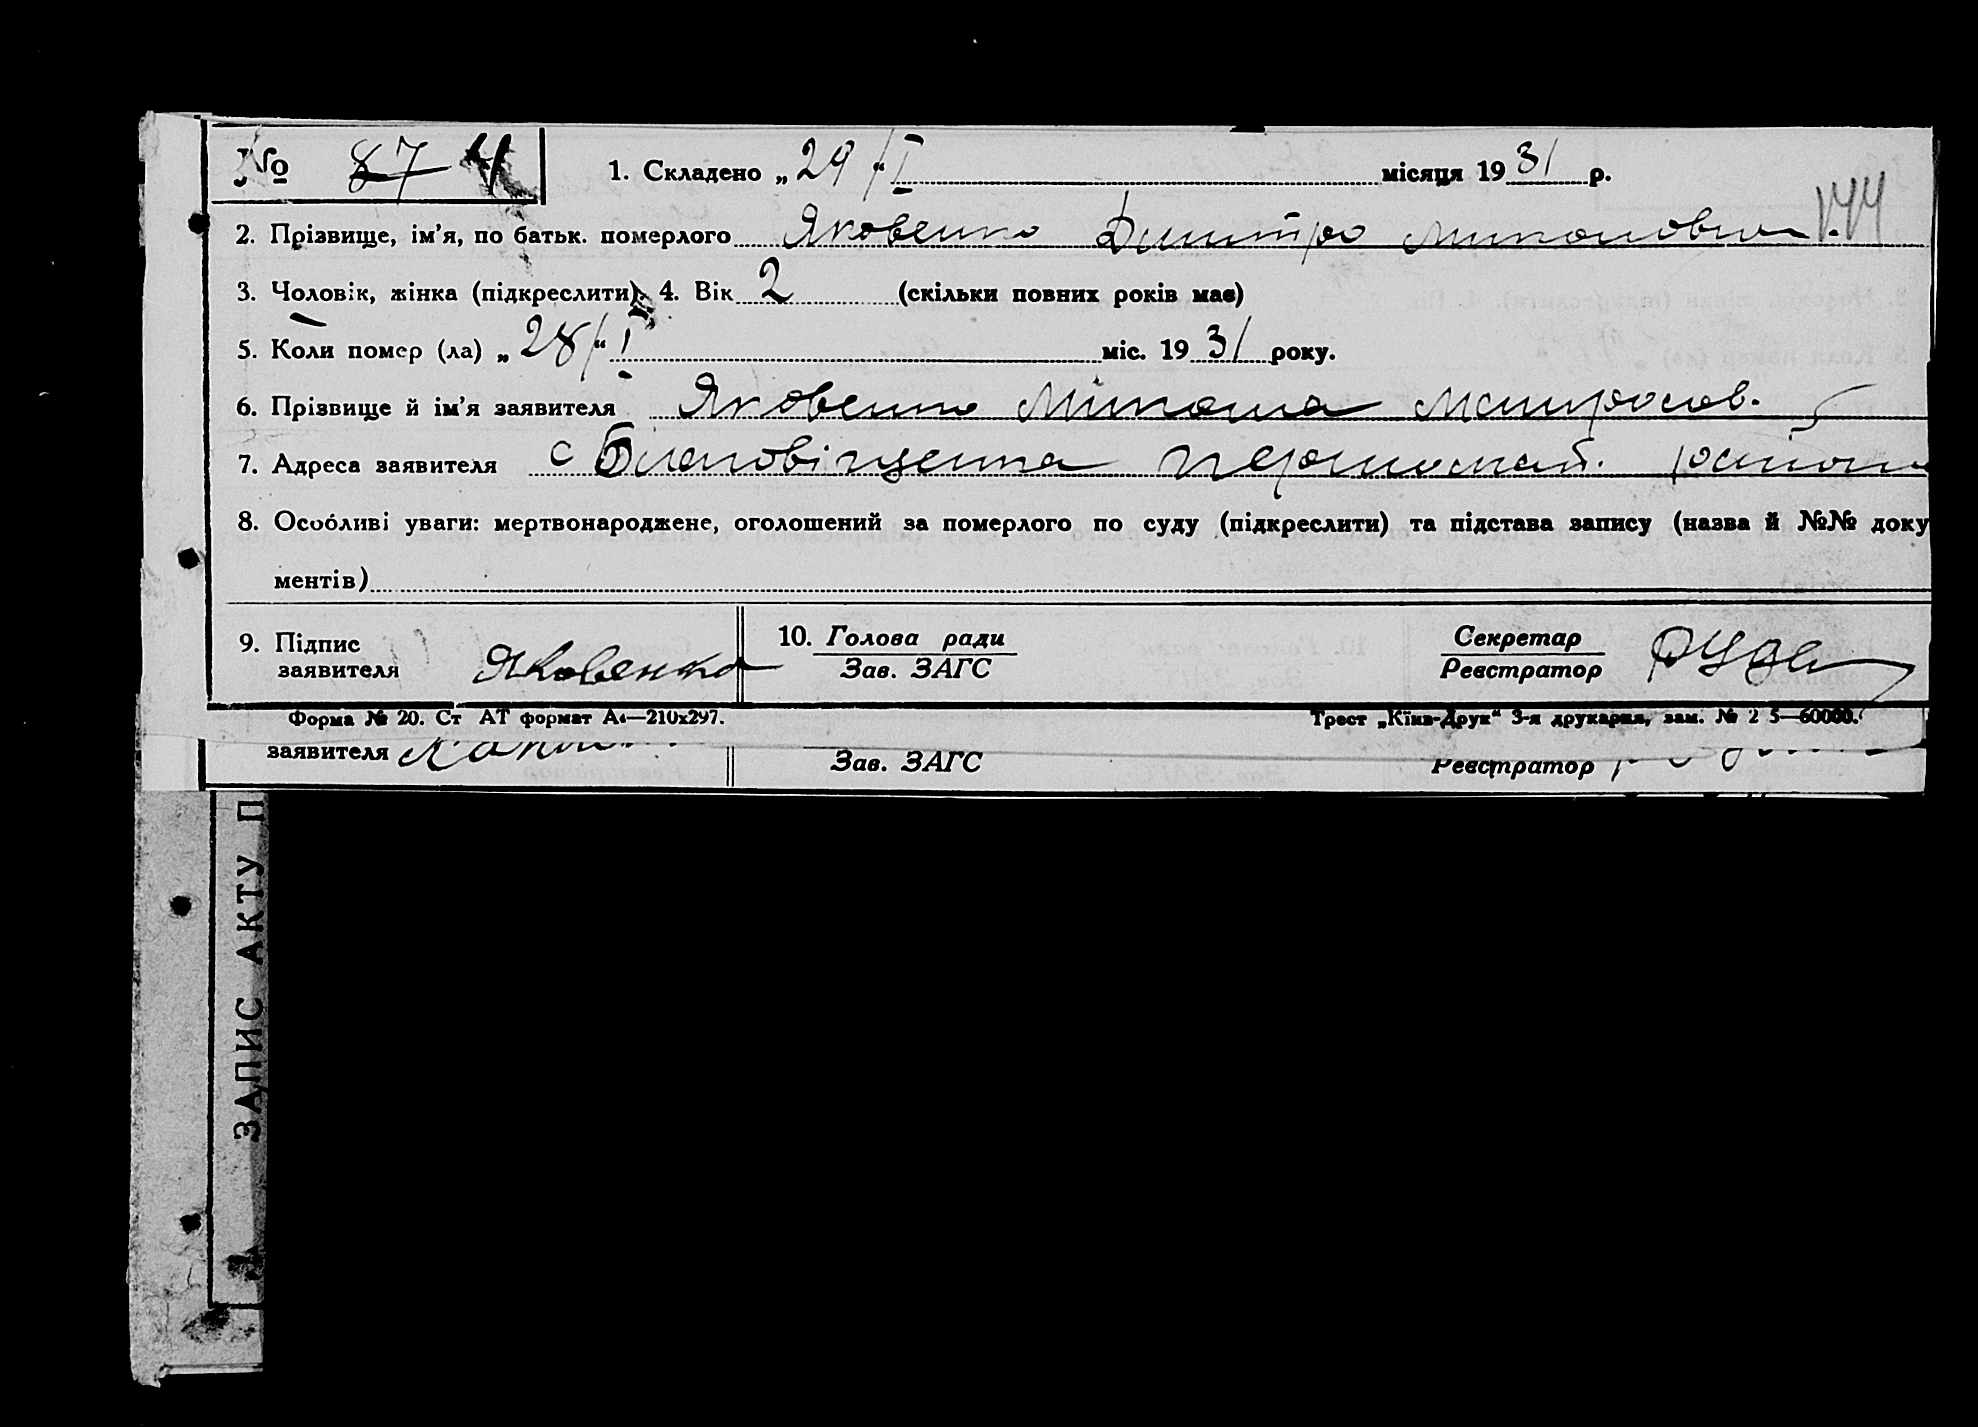 № 87 4 1. Складено „29/“ I місяця 1931 р.
2. Прізвище, ім’я, по батьк. померлого Яковенко Дмитро
3. Чоловік, жінка (підкреслити). 4. Вік 2 (скільки повних років має)
5. Коли помер (ла) „28/“ I міс. 1931 року.
6. Прізвище й ім’я заявителя Яковенко
7. Адреса заявителя с Благовіщенка
8. Особливі уваги: мертвонароджене, оголошений за померлого по суду (підкреслити) та підстава запису (назва й №№ доку
ментів)
9. Підпис заявителя Яковенко 10. Голова ради Зав. ЗАГС Секретар Реєстратор Руда
Форма № 20. Ст АТ формат А4—210х297. Трест „Київ-Друк“ 3-я друкарня, зам. № 2 5—60000.
заявителя Зав. ЗАГС Реєстратор
ЗАПИС АКТУ П